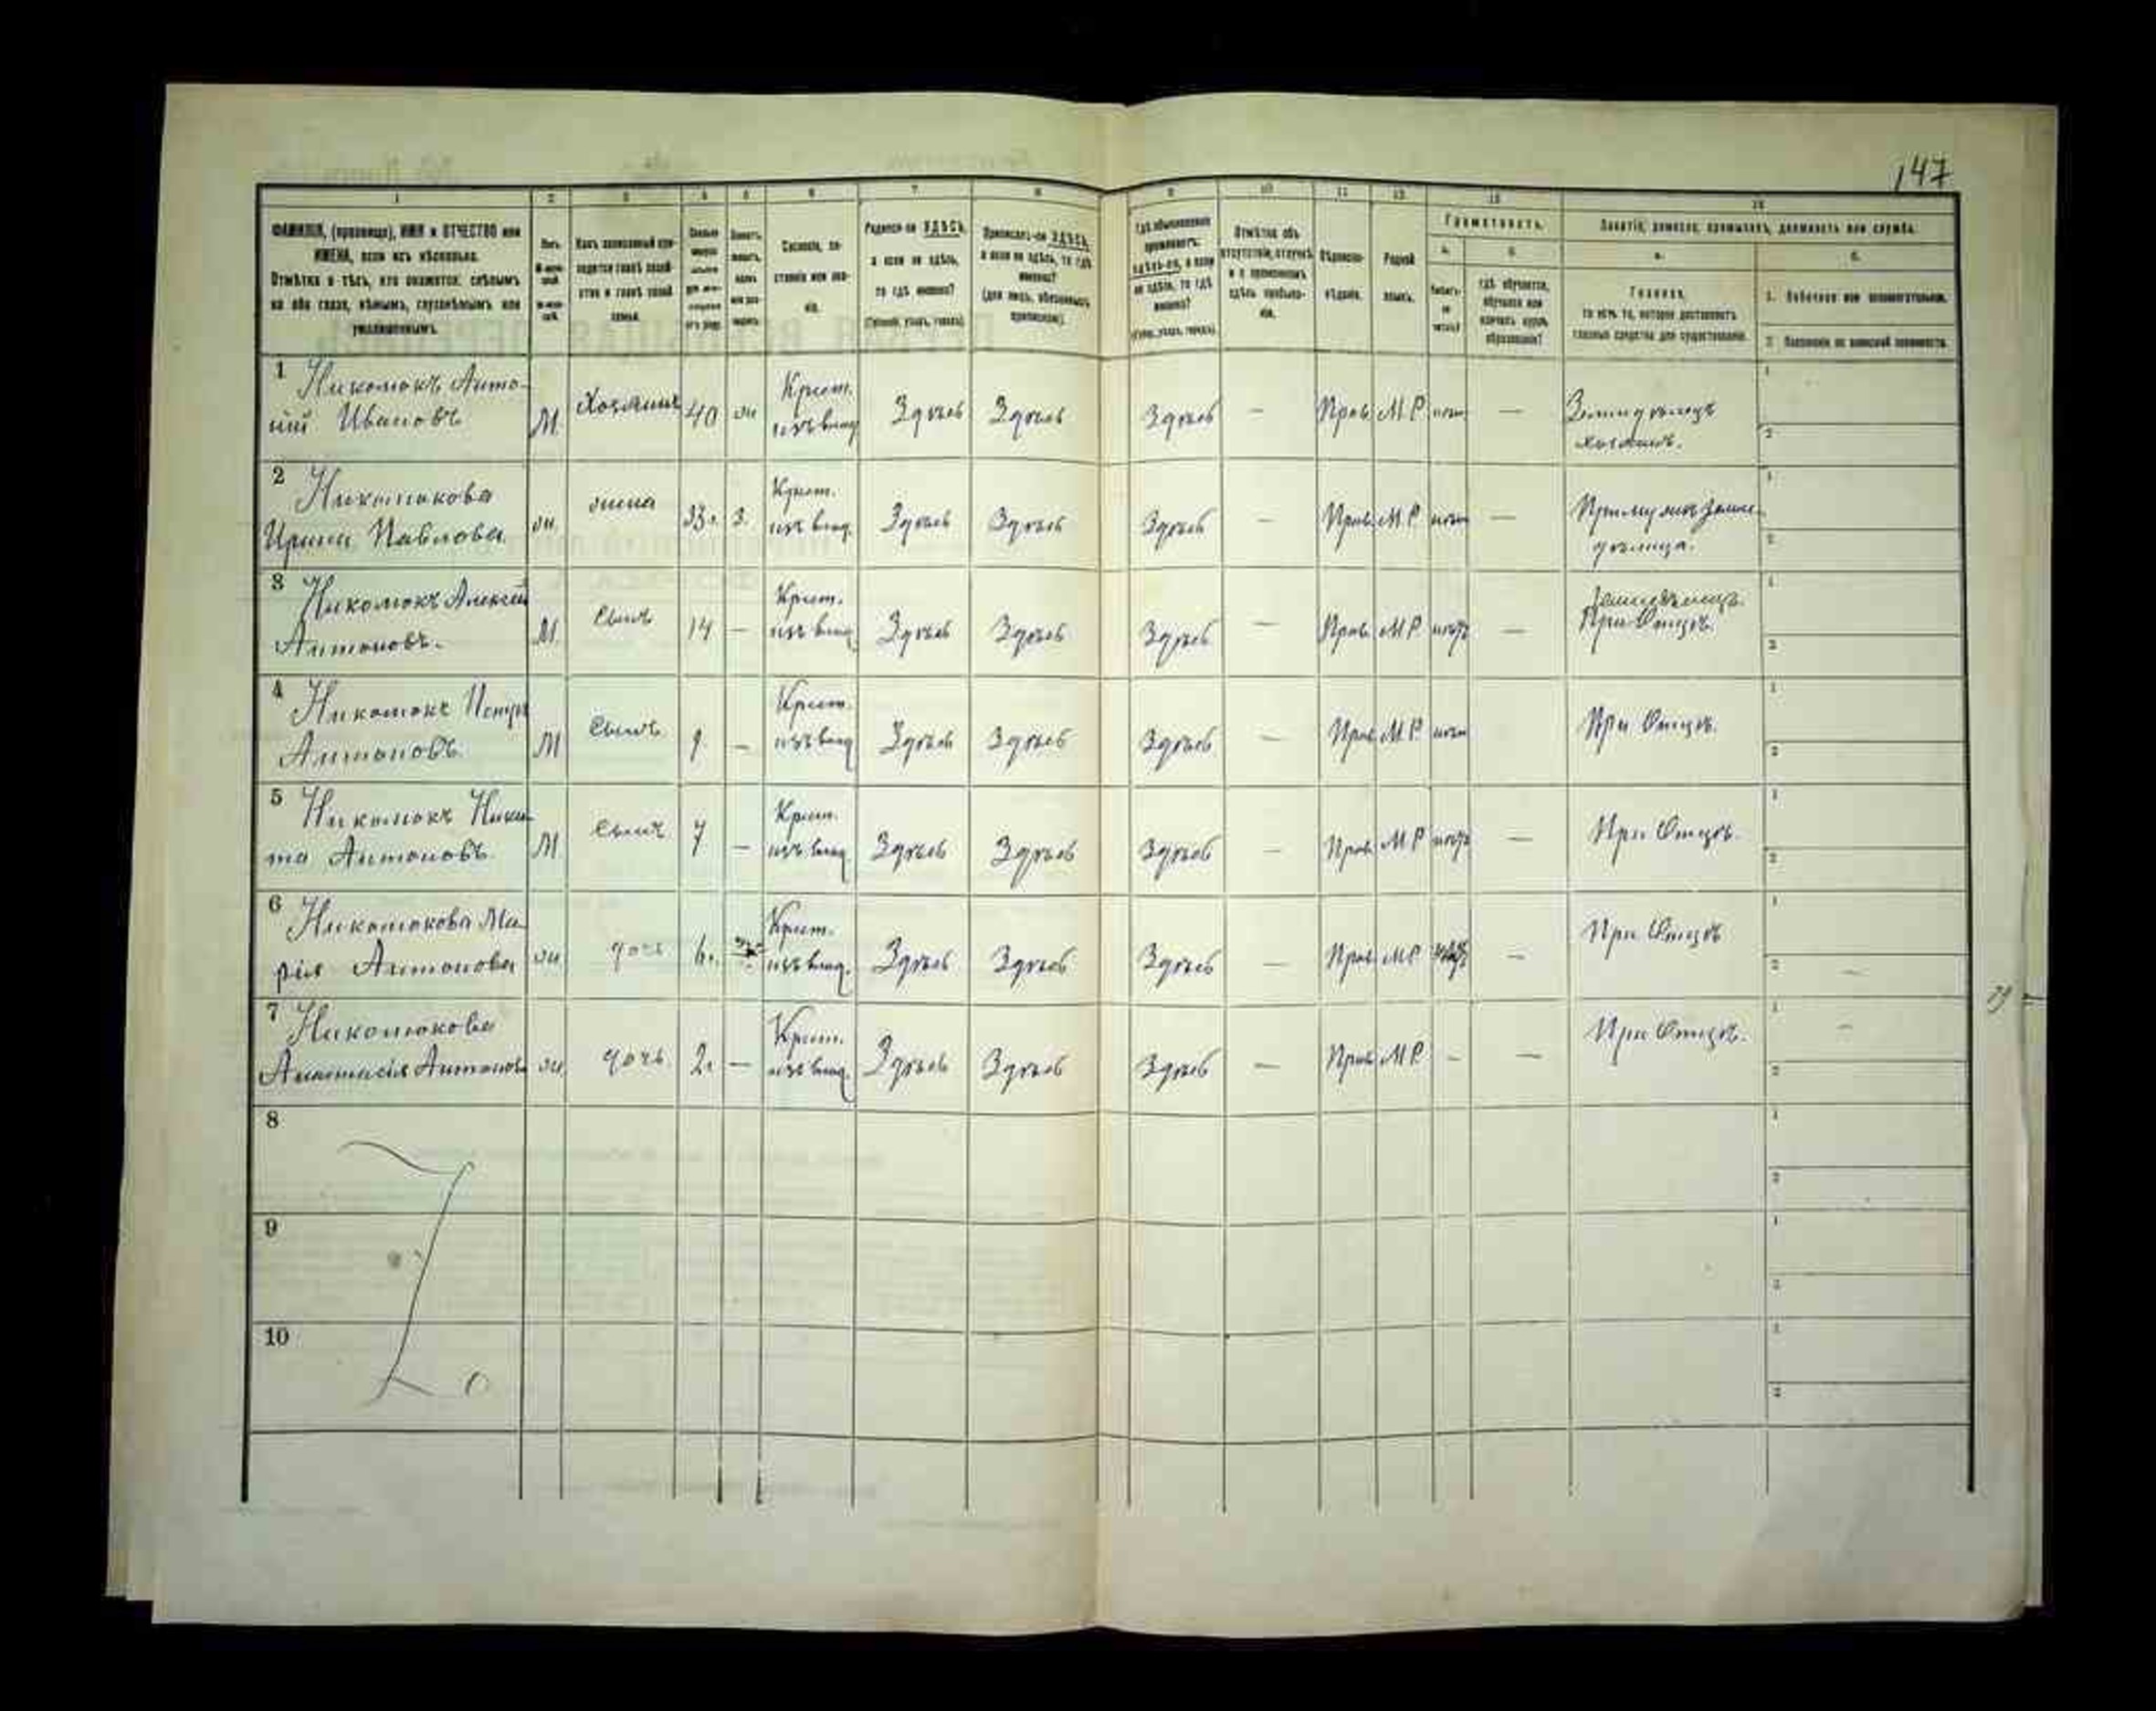 147
1 2 3 4 5 6 7 8 9 10 11 12 13 14
ФАМИЛІЯ, (прозвище), ИМЯ и ОТЧЕСТВО или
ИМЕНА, если ихъ нѣсколько.
Отмѣтка о тѣхъ, кто окажется: слѣпымъ
на оба глаза, нѣмымъ, глухонѣмымъ или
умалишеннымъ.
Сословіе, со-
стояніе или зва-
ніе.
Родился-ли ЗДѢСЬ,
а если не здѣсь,
то гдѣ именно?
(Губернія, уѣздъ, городъ).
Приписанъ-ли ЗДѢСЬ,
а если не здѣсь, то гдѣ
именно?
(для лицъ, обязанныхъ
припискою).
Гдѣ обыкновенно
проживаетъ:
здѣсь-ли, а если
не здѣсь, то гдѣ
именно?
(Губерн., уѣздъ, городъ).
Отмѣтка объ
отсутствіи, отлучкѣ
и о временномъ
здѣсь пребыва-
ніи.
Вѣроиспо-
вѣданіе.
Родной
языкъ.
Грамотность.
а. б.
гдѣ обучается,
обучался или
кончилъ курсъ
образованія?
Занятіе, ремесло, промыселъ, должность или служба.
а. б.
Главное,
то есть то, которое доставляетъ
главныя средства для существованія.
1. Побочное или вспомогательное.
2. Положеніе по воинской повинности.
1 Никонюкъ Анто-
ній Ивановъ М Хозяинъ 40 ж Крест. изъ влад. Здѣсь Здѣсь Здѣсь — Прав. М Р нѣт — Земледѣлецъ хозяинъ.
2 Никонюкова
Ирина Павлова ж. жена 33. з. Крест. изъ влад. Здѣсь Здѣсь Здѣсь — Прав. М Р нѣт —
3 Никонюкъ Алексѣй
Антоновъ. М. Сынъ 14 — Крест. изъ влад. Здѣсь Здѣсь Здѣсь — Прав. М Р нѣтъ — Земледѣлецъ. При Отцѣ.
4 Никонюкъ Петръ
Антоновъ. М Сынъ 9 — Крест. изъ влад. Здѣсь Здѣсь Здѣсь — Прав М Р нѣт При Отцѣ.
5 Никонюкъ Ники-
та Антоновъ. М. Сынъ 7 — Крест. изъ влад. Здѣсь Здѣсь Здѣсь — Прав М Р нѣтъ — При Отцѣ.
6 Никонюкова Ма-
рія Антонова ж. дочь 6. Крест. изъ влад. Здѣсь Здѣсь Здѣсь — Прав М Р — При Отцѣ
7 Никонюкова
Анастасія Антонова ж. дочь 2. — Крест. изъ влад. Здѣсь Здѣсь Здѣсь — Прав М Р - — При Отцѣ.
8
9
10